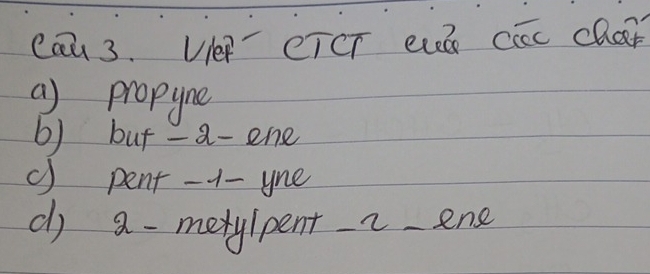 Câu 3. Viết CTCT của các chất
a) propyne
b) but - 2 - ene
c) pent - 1 - yne
d) 2 - metylpent - 2 - ene